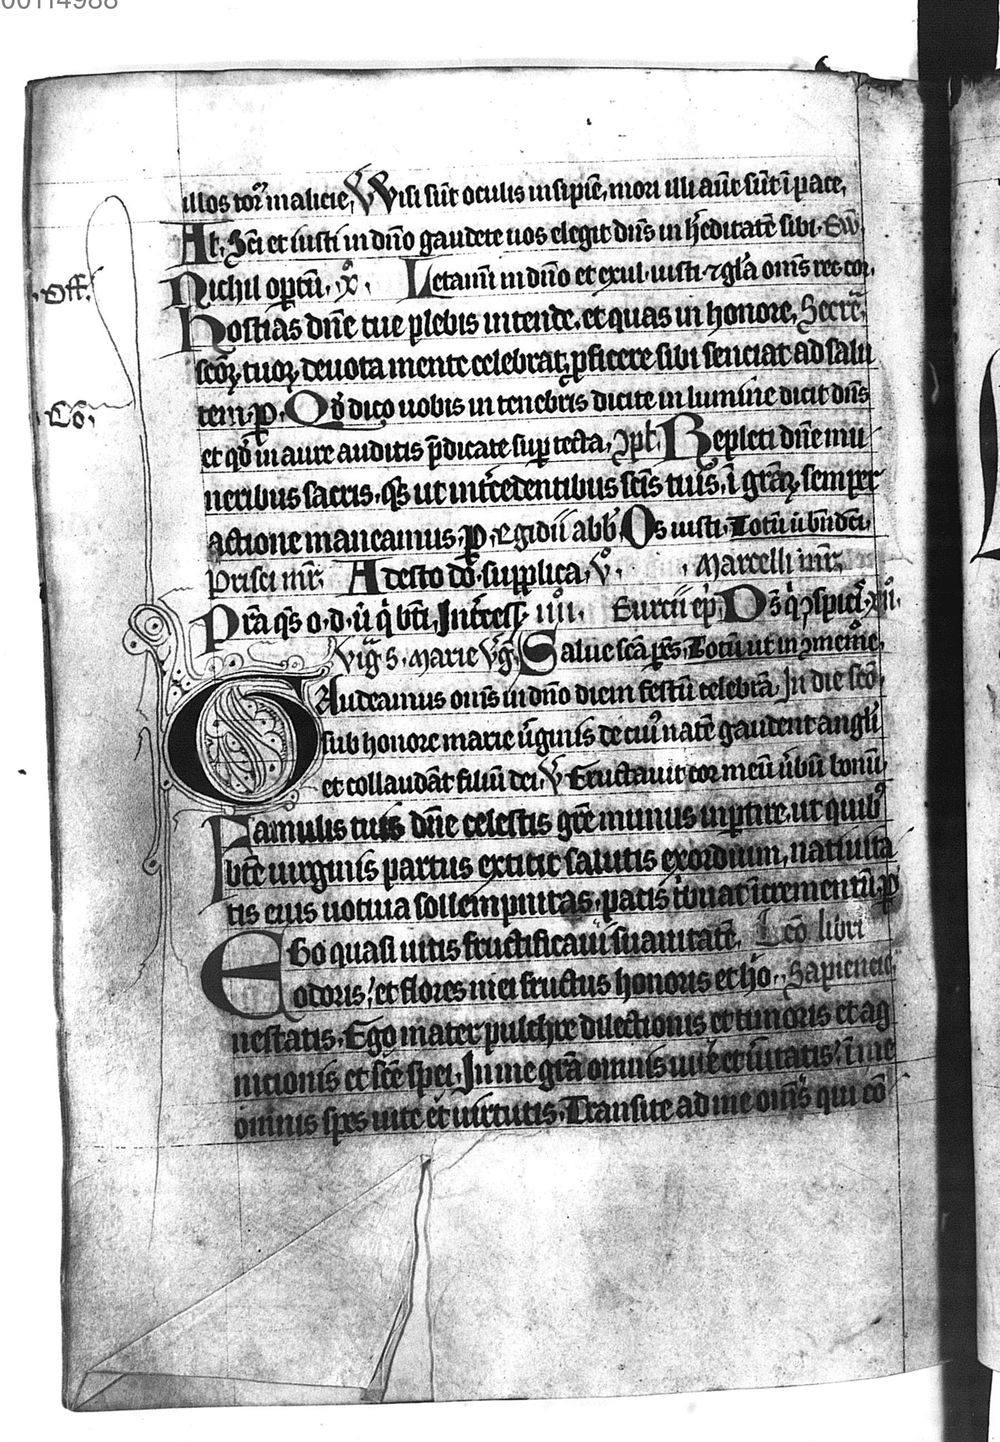 00114988
illos tor̃ malicie, V̷ Uisi sũt oculis insipiẽ, mori illi aũt sũt ĩ pace,
Al, Sc̃i et iusti in dño gaudete uos elegit dñs in h̃editatẽ sibi. Ew̃
Off. Nichil op̃tũ. x̊. Letamĩ in dño et exul. iusti ⁊ gl̃a om̃s rec cor.
Hostias dñe tue plebis intende, et quas in honore, Secrẽ,
sc̃oꝝ tuoꝝ deuota mente celebrat, ꝓficere sibi senciat ad salu
Cõ, tem. P. Qd̃ dico uobis in tenebris dicite in lumine dicit dñs
et qd̃ in aure auditis p̃dicate sup̃ tecta, Ipl̃. Repleti dñe mu
neribus sacris. q̃s ut int̃cedentibus sc̃is tuis, ĩ gr̃aꝝ semper
actione maneamus. P. Egidii abb̃. Os iusti. Totũ
Prisci mr̃. Adesto dõ. supplica, V̊. Marcelli mr̃,
Pr̃a q̃s o. d. ũ q̃ bt̃i, Int̃cess. iiiı̊. Eurcii ep̃. Ds̃ q̃ ꝯspic̃.
Vig̃ s. Marie v̾g̃. Salue sc̃a p̃es. Totũ ut in ꝯmem̃e,
GAudeamus om̃s in dño diem festũ celebrã. In die sc̃o
sub honore marie ũginis de cuiꝰ natẽ gaudent angl̃i
et collaudãt filiũ dei. V̷ Eructauit cor meũ ũbũ bonũ
Famulis tuis dñe celestis gr̃e munus inp̃tire. ut quibꝰ
bt̃e uirginis partus extitit salutis exordium, natiuita
tis eius uotiua sollempnitas. pacis t̃buat ĩcrementũ. P̃
EGo quasi uitis fructificaui suauitatẽ, Lcõ libri
odoris: et flores mei fructus honoris et hõ. Sapiencie.
nestatis. Ego mater pulchre dilectionis et timoris et ag
nicionis et sc̃e spei. In me gr̃a omnis uie et ũitatis: ĩ me
omnis spes uite et uirtutis. Transite ad me om̃s qui cõ